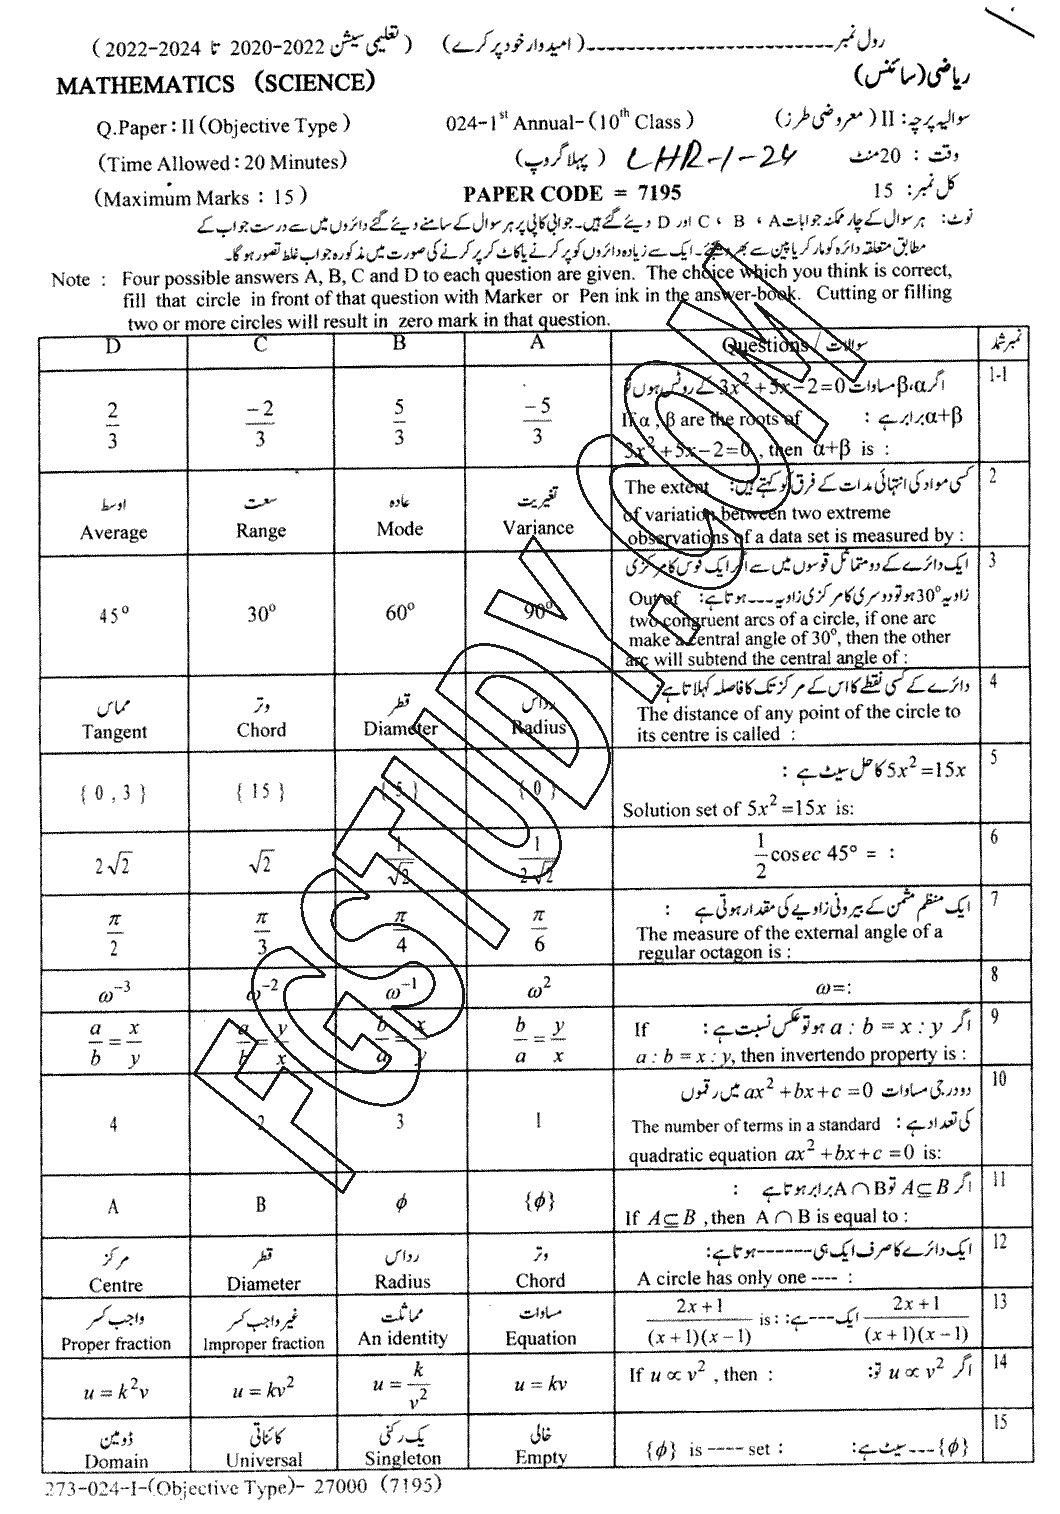 رول نمبر ---------------------------(امیدوار خود پر کرے) (تعلیمی سیشن 2022-2020 تا 2024-2022)
ریاضی (سائنس) MATHEMATICS (SCIENCE)
سوالیہ پرچہ : II (معروضی طرز) 024-1st Annual-(10th Class) Q.Paper : II (Objective Type)
وقت : 20 منٹ LHR-1-24 (پہلا گروپ) (Time Allowed : 20 Minutes)
کل نمبر : 15 PAPER CODE = 7195 (Maximum Marks : 15)
نوٹ : ہر سوال کے چار ممکنہ جوابات A ، B ، C اور D دیئے گئے ہیں۔ جوابی کاپی پر ہر سوال کے سامنے دیئے گئے دائروں میں سے درست جواب کے
مطابق متعلقہ دائرہ کو مارکر یا پین سے بھر دیجئے۔ ایک سے زیادہ دائروں کو پر کرنے یا کاٹ کر پر کرنے کی صورت میں مذکورہ جواب غلط تصور ہوگا۔
Note : Four possible answers A, B, C and D to each question are given. The choice which you think is correct,
fill that circle in front of that question with Marker or Pen ink in the answer-book. Cutting or filling
two or more circles will result in zero mark in that question.
D C B A Questions / سوالات نمبر شمار
1-1 اگر α ، β مساوات 3x²+5x−2=0 کے روٹس ہوں تو
α+β برابر ہے : If α , β are the roots of
3x²+5x−2=0 , then α+β is :
2/3 −2/3 5/3 −5/3
2 کسی مواد کی انتہائی مدات کے فرق کو کہتے ہیں: The extent
of variation between two extreme
observations of a data set is measured by :
اوسط سعت عادہ تغیریت
Average Range Mode Variance
3 ایک دائرے کے دو متماثل قوسوں میں سے اگر ایک قوس کا مرکزی
زاویہ 30° ہو تو دوسری کا مرکزی زاویہ --- ہوتا ہے : Out of
two congruent arcs of a circle, if one arc
make a central angle of 30°, then the other
arc will subtend the central angle of :
45° 30° 60° 90°
4 دائرے کے کسی نقطے کا اس کے مرکز تک کا فاصلہ کہلاتا ہے:
The distance of any point of the circle to
its centre is called :
مماس وتر قطر رداس
Tangent Chord Diameter Radius
5 5x²=15x کا حل سیٹ ہے :
Solution set of 5x²=15x is:
{ 0 , 3 } { 15 } { 5 } { 0 }
6 1/2 cosec 45° = :
2√2 √2 1/√2 1/2√2
7 ایک منظم مثمن کے بیرونی زاویے کی مقدار ہوتی ہے :
The measure of the external angle of a
regular octagon is :
π/2 π/3 π/4 π/6
8 ω=:
ω⁻³ ω⁻² ω⁻¹ ω²
9 اگر a : b = x : y ہو تو عکس نسبت ہے : If
a : b = x : y, then invertendo property is :
a/b = x/y a/b = y/x b/a = x/y b/a = y/x
10 دو درجی مساوات ax²+bx+c=0 میں رقموں
کی تعداد ہے : The number of terms in a standard
quadratic equation ax²+bx+c=0 is:
4 2 3 1
11 اگر A⊆B تو A∩B برابر ہوتا ہے :
If A⊆B , then A∩B is equal to :
A B ϕ {ϕ}
12 ایک دائرے کا صرف ایک ہی ------ ہوتا ہے :
A circle has only one ---- :
مرکز قطر رداس وتر
Centre Diameter Radius Chord
13 (2x+1)/((x+1)(x−1)) ایک --- ہے : (2x+1)/((x+1)(x−1)) is :
واجب کسر غیر واجب کسر مماثلت مساوات
Proper fraction Improper fraction An identity Equation
14 اگر u ∝ v² تو : If u ∝ v² , then :
u = k²v u = kv² u = k/v² u = kv
15 {ϕ} --- سیٹ ہے : {ϕ} is ---- set :
ڈومین کائناتی یک رکنی خالی
Domain Universal Singleton Empty
273-024-I-(Objective Type)- 27000 (7195)
FGSTUDY.COM